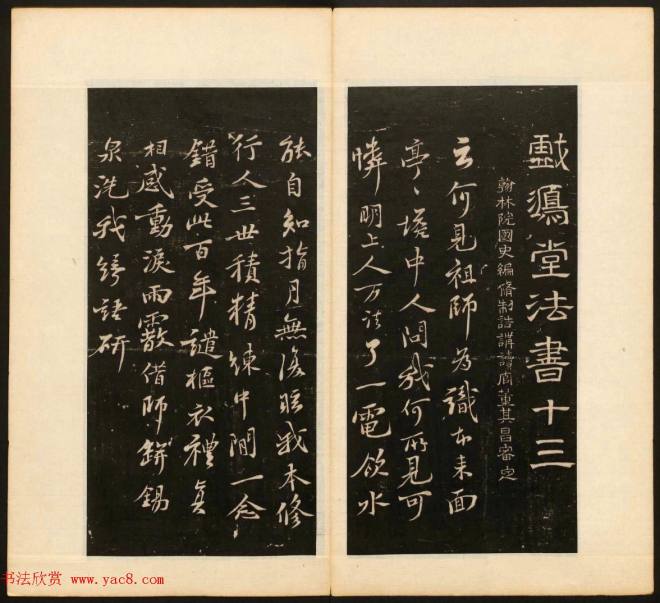 戲鴻堂法書十三
翰林院國史編脩制誥講讀官董其昌審定
云何見祖師為識本来面
亭〻塔中人問我何所見可
憐明上人万法了一電飲水
能自知指月無復眩我本修
行人三世積精練中間一念
錯受此百年譴樞衣禮真
相感動淚雨霰借師缾錫
泉洗我綺語研
书法欣赏 www.yac8.com